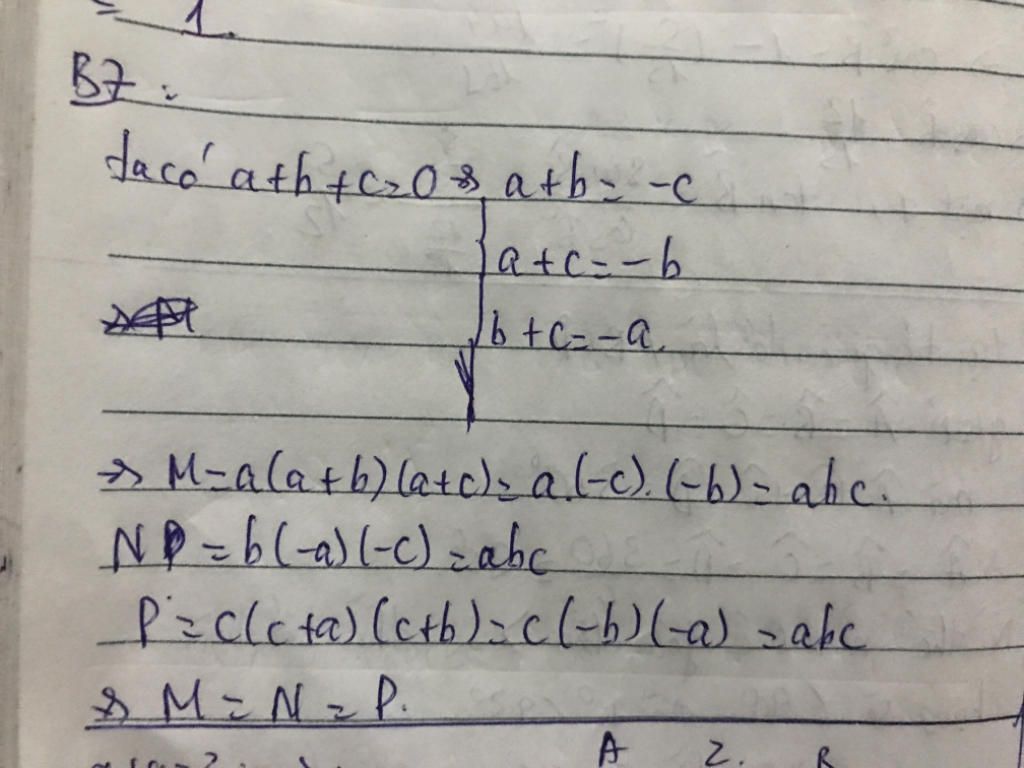 = 1.
B7:
Ta có a+b+c=0 => a+b=-c
a+c=-b
b+c=-a.
=> M=a(a+b)(a+c)=a.(-c).(-b)=abc.
N =b(-a)(-c)=abc
P=c(c+a)(c+b)=c(-b)(-a)=abc
=> M=N=P.
A 2. B